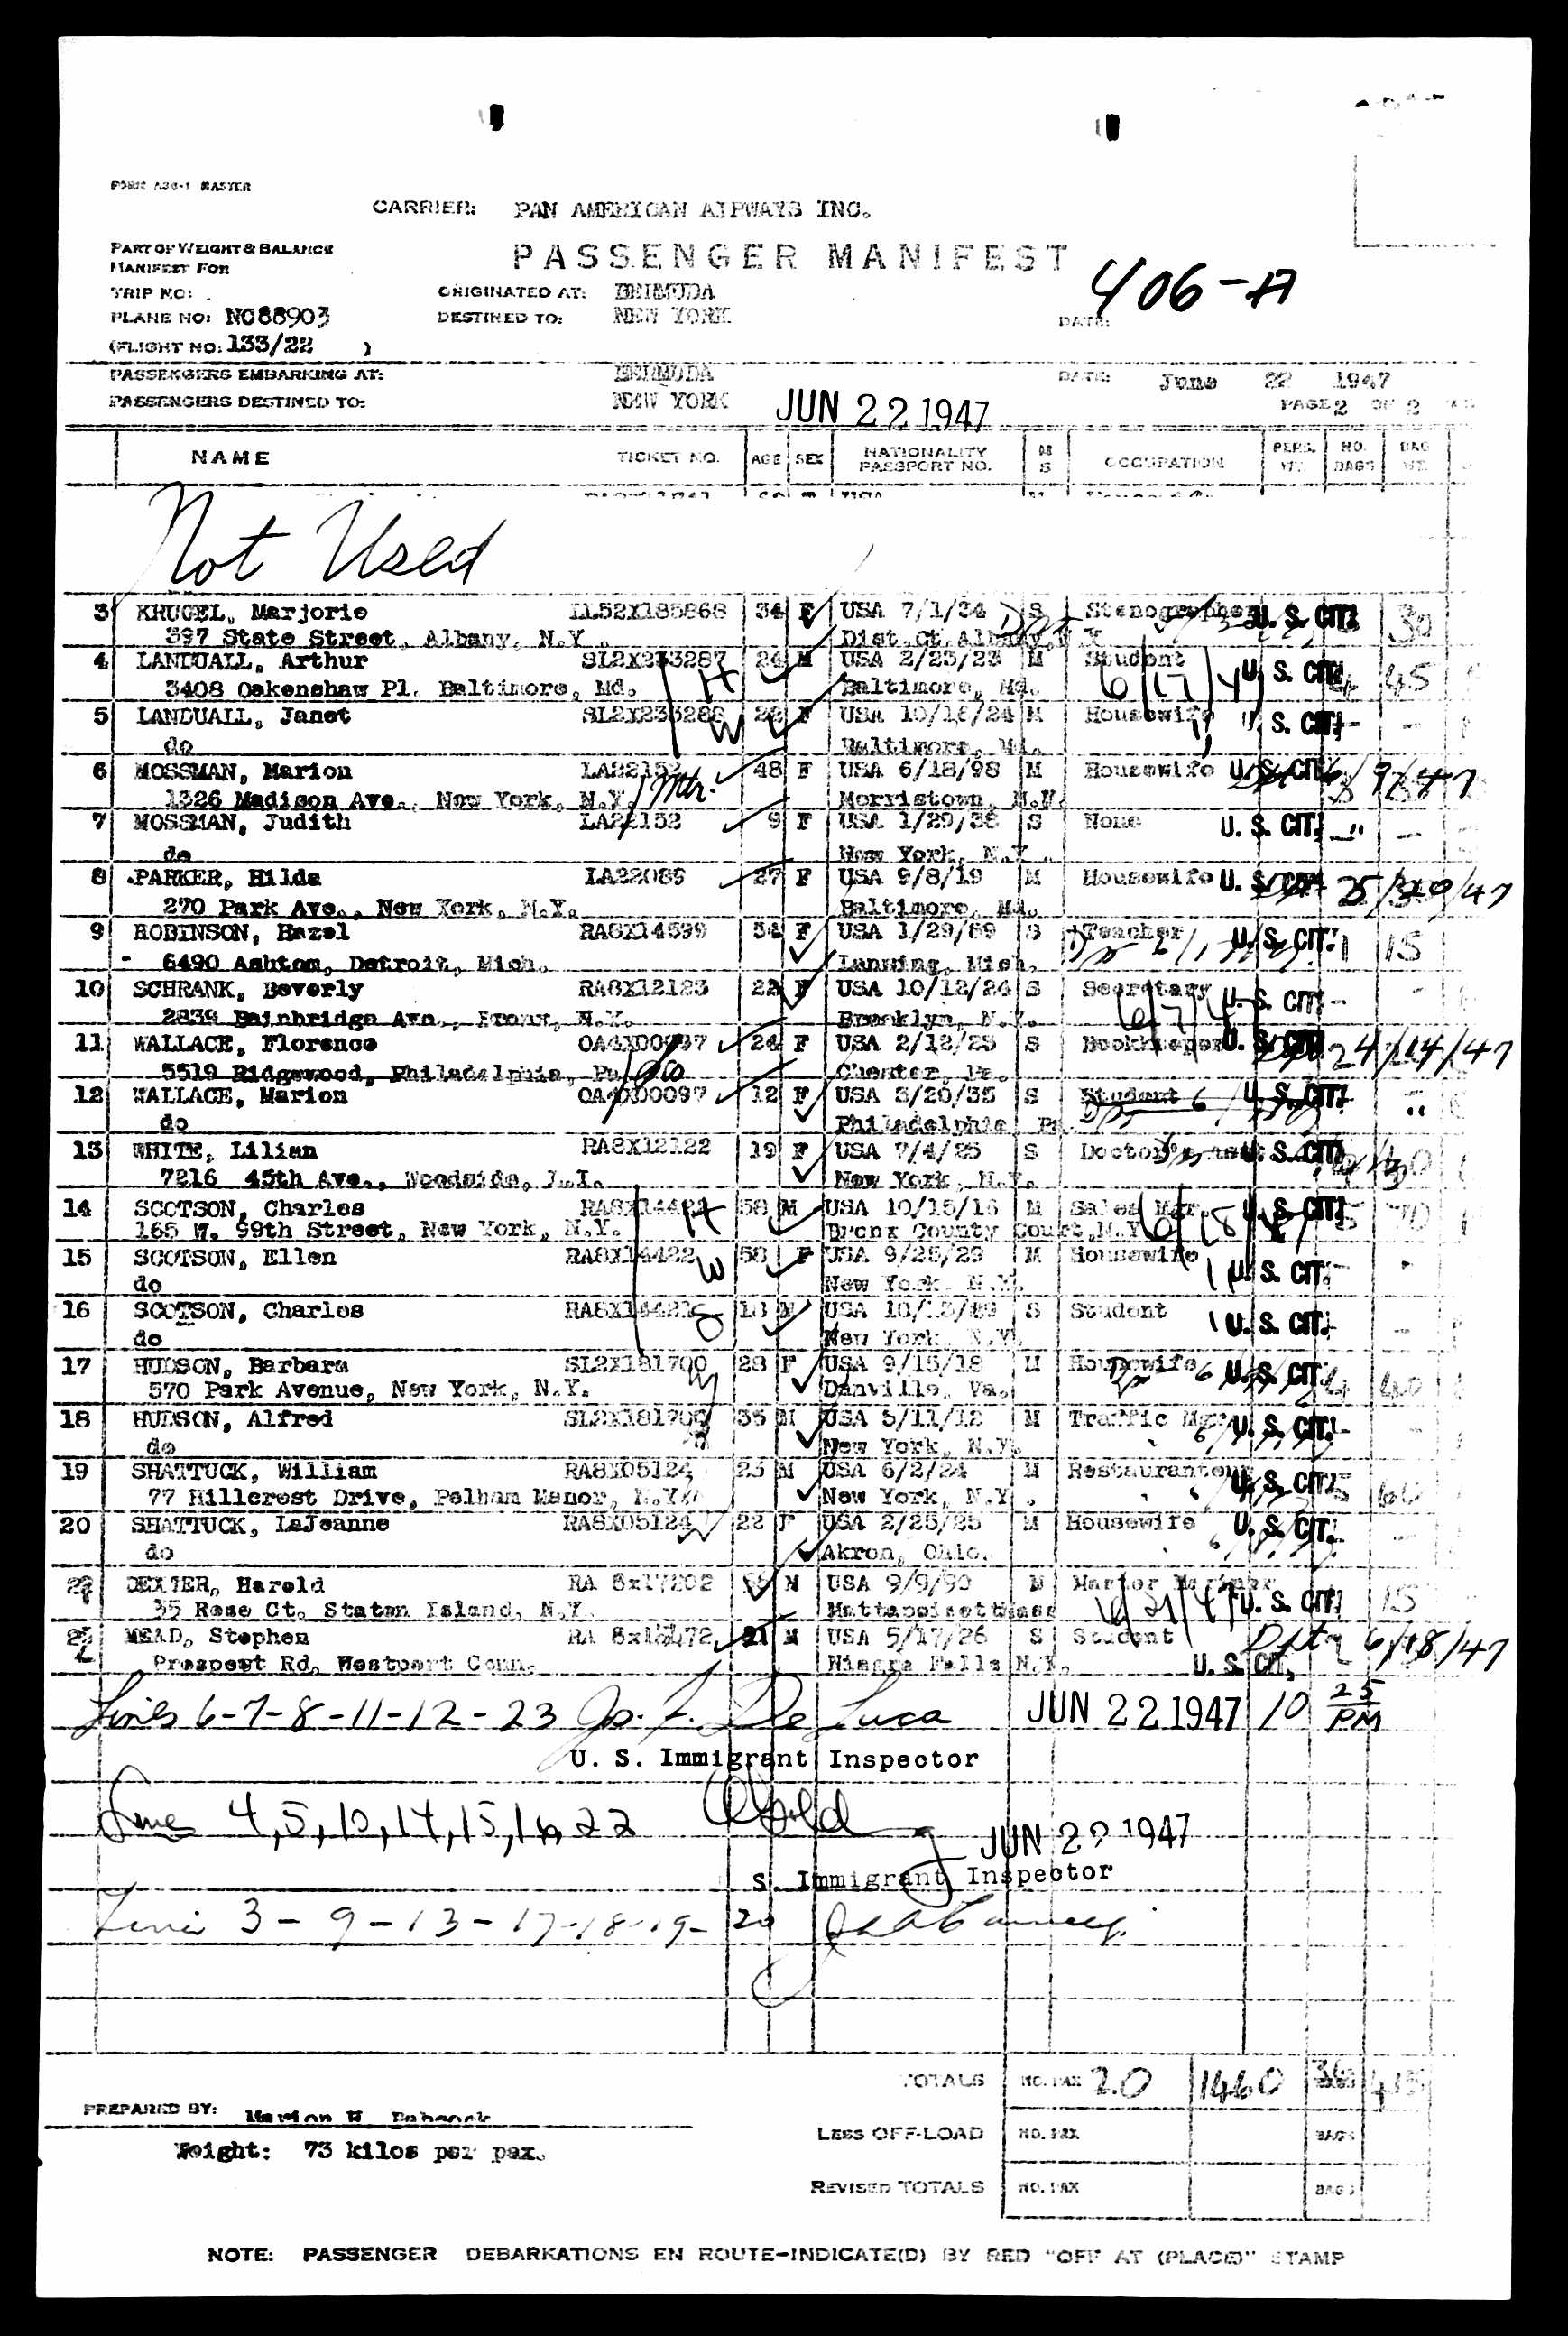 FORM A36-1 MASTER
CARRIER: PAN AMERICAN AIRWAYS INC.
PASSENGER MANIFEST
406-A
PART OF WEIGHT & BALANCE
MANIFEST FOR
TRIP NO:
ORIGINATED AT: BERMUDA
PLANE NO: NC88903
DESTINED TO: NEW YORK
DATE:
(FLIGHT NO: 133/22 )
PASSENGERS EMBARKING AT: BERMUDA
DATE: June 22 1947
PASSENGERS DESTINED TO: NEW YORK
JUN 22 1947
PAGE 2 OF 2
NAME TICKET NO. AGE SEX NATIONALITY PASSPORT NO. M S OCCUPATION PERS. WT. NO. BAGS BAG WT.
Not Used
3 KRUGEL, Marjorie LL52X185868 34 F USA 7/1/34 S Stenographer U. S. CIT. 30
397 State Street, Albany, N.Y. Dist.Ct.Albany,N Y
4 LANDUALL, Arthur SL2X233287 24 M USA 2/23/23 M Student U. S. CIT. 4 45
3408 Oakenshaw Pl. Baltimore, Md. H Baltimore, Md. 6/17/47
5 LANDUALL, Janet SL2X233288 22 F USA 10/16/24 M Housewife U. S. CIT. - -
do W Baltimore, Md.
6 MOSSMAN, Marion LA22152 48 F USA 6/18/98 M Housewife U. S. CIT. 6/9/47
1326 Madison Ave., New York, N.Y. Mth. Morristown, N.J.
7 MOSSMAN, Judith LA22152 9 F USA 1/29/38 S None U. S. CIT. " -
do New York, N.Y.
8 PARKER, Hilda LA22086 27 F USA 9/8/19 M Housewife U. S. CIT. 5/29/47
270 Park Ave., New York, N.Y. Baltimore, Md.
9 ROBINSON, Hazel RA8X14699 54 F USA 1/29/89 S Teacher U. S. CIT. 1 15
6490 Ashtom, Detroit, Mich. Lansing, Mich.
10 SCHRANK, Beverly RA8X12123 22 F USA 10/12/24 S Secretary U. S. CIT. -
2839 Bainbridge Ave., Bronx, N.Y. Brooklyn, N.Y. 6/7/47
11 WALLACE, Florence OA4X00097 24 F USA 2/12/23 S Bookkeeper U. S. CIT. 4/14/47
5519 Ridgewood, Philadelphia, Pa Chester, Pa.
12 WALLACE, Marion OA4X00097 12 F USA 3/20/35 S Student U. S. CIT. -
do Philadelphia Pa.
13 WHITE, Lilian RA8X12122 19 F USA 7/4/25 S Doctor's asst U. S. CIT.
7216 45th Ave., Woodside, L.I. New York, N.Y.
14 SCOTSON, Charles RA8X14422 58 M USA 10/15/16 M Sales Mgr. U. S. CIT. 5 70
165 W. 99th Street, New York, N.Y. H Bronx County Court,N.Y 6/18/47
15 SCOTSON, Ellen RA8X14422 58 F USA 9/25/29 M Housewife U. S. CIT. -
do W New York, N.Y.
16 SCOTSON, Charles RA8X14421 18 M USA S Student U. S. CIT. -
do New York N.Y.
17 HUDSON, Barbara SL2X181700 28 F USA 9/15/18 M Housewife U. S. CIT. 4 40
570 Park Avenue, New York, N.Y. W Danville, Va.
18 HUDSON, Alfred SL2X181700 35 M USA 5/11/12 M Traffic Mgr U. S. CIT. -
do New York, N.Y.
19 SHATTUCK, William RA8X05124 23 M USA 6/2/24 M Restauranteur U. S. CIT. 5 60
77 Hillcrest Drive, Pelham Manor, N.Y. New York, N.Y.
20 SHATTUCK, LaJeanne RA8X05124 22 F USA 2/25/25 M Housewife U. S. CIT. -
do W Akron, Ohio.
DEXTER, Harold RA 8x17202 M USA 9/9/90 M Master Mariner U. S. CIT. 15
35 Rose Ct. Staten Island, N.Y. Mattapoisett Mass 6/21/47
MEAD, Stephen RA 8x15472 21 M USA 5/17/26 S Student 6/18/47
Prospect Rd. Westport Conn. Niagra Falls N.Y. U. S. CIT.
Lines 6-7-8-11-12-23 Jo. F. De Luca JUN 22 1947 10 25 PM
U. S. Immigrant Inspector
Lines 4,5,10,14,15,16,22 JUN 22 1947
S. Immigrant Inspector
Lines 3-9-13-17-18-19-20
TOTALS NO. PAX 20 1460 36 415
PREPARED BY: Marion H. Babcock
LESS OFF-LOAD NO. PAX BAGS
Weight: 73 kilos per pax.
REVISED TOTALS NO. PAX BAGS
NOTE: PASSENGER DEBARKATIONS EN ROUTE-INDICATE(D) BY RED "OFF AT (PLACE)" STAMP